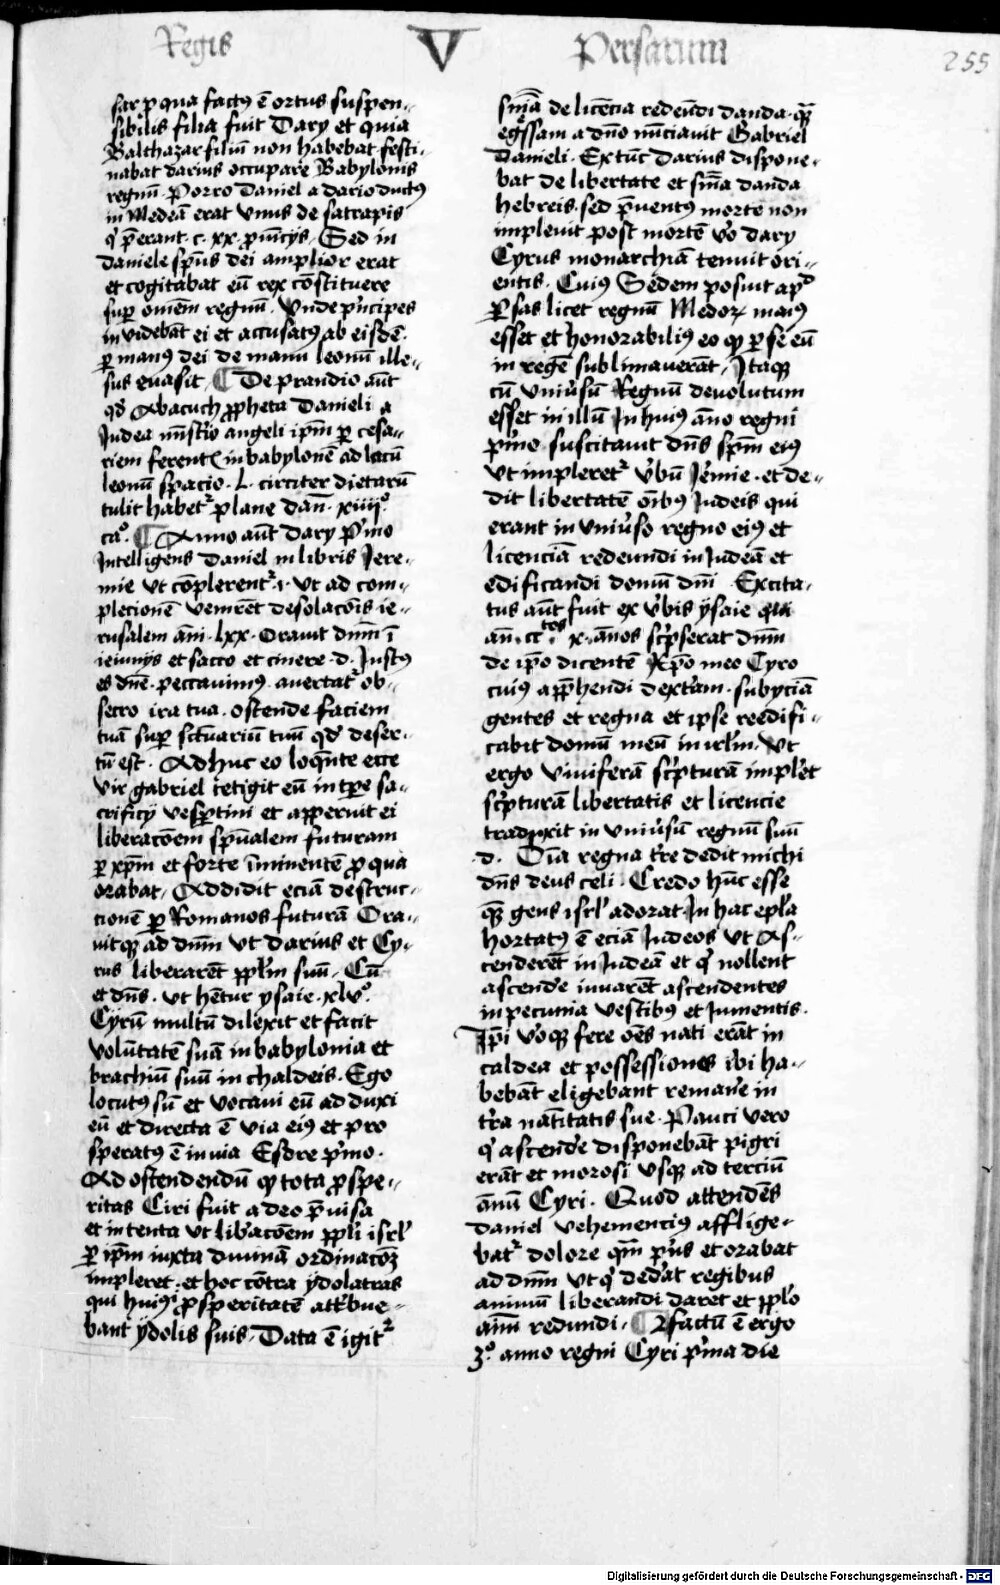 Regis V Persarum 255
sar ꝑ qua factꝰ ē ortus suspen-
sibilis filia fuit Dary et quia
Balthazar filiū non habebat festi-
nabat darius occupare Babylonis
regnū. Porro Daniel a dario ductꝰ
in Medeā erat vnus de satrapis
qͥ p̄erant .c.xx. ꝓuīcijs. Sed in
daniele spūs dei amplior erat
et cogitabat eū rex cōstituere
suꝑ omēm regnū. Vnde pͥncipes
invidebāt ei et accusatꝰ ab eisdē.
ꝑ manꝰ dei de manu leonū ille-
sus evasit. ¶ De prandio aūt
qd̄ Abacuch ꝓpheta Danieli a
Judea mīst̄io angeli ipm̄ ꝑ cesa-
riem ferentꝭ in babylonē ad lacū
leonū spacio .L. circiter dietarū
tulit habetᷣ plane dan̄. xiiijº.
caº. ¶ Anno aūt dary pͥmo
Intelligens Daniel in libris Jere-
mie vt cōplerentᷣ .i. vt ad com-
pletionē venirēt desolacōis ie-
rusalem āni .lxx. Oravit dnm̄ ī
ieiunijs et sacco et cinere .d. Justꝰ
es dn̄e. peccavimꝰ. avertatᷣ ob-
secro ira tua. ostende faciem
tuā suꝑ sc̄tuariū tuū qd̄ deser-
tū est. Adhuc eo loquēte ecce
vir gabriel tetigit eū in tꝑe sa-
crificij vesꝑtini et apperuit ei
liberacōem sp̄ualem futuram
ꝑ xp̄m et forte īminentē ꝓ qua
orabat. Addidit eciā destruc-
tionē ꝑ Romanos futurā Ora-
uitqꝫ ad dnm̄ vt darius et Cy-
rus liberarēt ppl̄m suū. Cū
et dn̄s. vt hētur ysaie .xlvº.
Cyrū multū dilexit et facit
volūtatē suā in babylonia et
brachiū suū in chaldeis. Ego
locutꝰ sū et vocavi eū adduxi
eū et directa ē via eiꝰ et pro
speratꝰ ē in via Esdre pͥmo.
Ad ostendendū ꝙ tota ꝓspe-
ritas Ciri fuit adeo p̄uisa
et intenta vt lib̄acōem ppl̄i isrl̄
ꝑ ip̄m iuxta divinā ordinacōꝫ
impleret. et hoc cōtra ydolatras
qui huiꝰ ꝓsperitatē attͥbue-
bant ydolis suis. Data ē igitᷣ
sn̄iā de licēcia redeūdi danda. quā
egressam a dn̄o nūciavit Gabriel
Danieli. Ex tūc Darius dispone-
bat de libertate et sn̄ia danda
hebreis. sed p̄uentꝰ morte non
implevit post mortē v̄o dary
Cyrus monarchiā tenuit ori-
entis. Cuiꝰ Sedem posuit apᵈ
ꝑsas licet regnū Medoꝝ maiꝰ
esset et honorabiliꝰ eo ꝙ ꝑ se eū
in regē sublimaverāt. Itaqꝫ
cū vniūsū Regnū devolutum
esset in illū In huiꝰ āno regni
pͥmo suscitavit dn̄s spm̄ eiꝰ
vt impleretᷣ v̄bū Jēmie. et de-
dit libertatē oībꝰ Judeis qui
erant in vniūso regno eiꝰ et
licenciā redeundi in Judeā et
edificandi domū dn̄i Excita-
tus aūt fuit ex v̄bis ysaie qui
an̄ .cctos x. ānos sc̄pserat dnm̄
de ip̄o dicentē xp̄o meo Cyro
cuiꝰ app̄hendi dext̄am. subyciā
gentes et regna et ipse reedifi-
cabit domū meū in irl̄m. vt
ergo viviferā sc̄pturā impl̄et
sc̄pturā libertatis et licencie
traduxit in vniūsū regnū suū
.d. Oīa regna t̄re dedit michi
dn̄s deus celi. Credo hūc esse
quē gens isrl̄ adorat. In hac epl̄a
hortatꝰ ē eciā Judeos vt As-
cenderēt in Judeā et qͥ nollent
ascend̄e iuvarēt ascendentes
in pecunia vestibꝰ et Jumentis.
Ip̄i v̄oqꝫ fere oēs nati erāt in
caldea et possessiones ibi ha-
bebāt eligebant reman̄e in
t̄ra natīvitatis sue. Pauci vero
qͥ ascend̄e disponebāt pigri
erāt et morosi vsqꝫ ad terciū
ānū Cyri. Quod attendēs
daniel vehemenciꝰ afflige-
batᷣ dolore qm̄ pͥus et orabat
ad dnm̄ vt qͥ ded̄at regibus
animū liberandi daret et ppl̄o
aīm redundi. ¶ factū ē ergo
3º. anno regni Cyri pͥma die
Digitalisierung gefördert durch die Deutsche Forschungsgemeinschaft - DFG